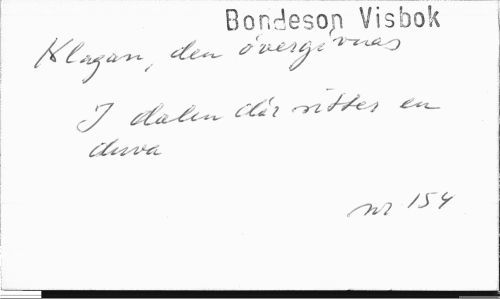 Bondeson Visbok
Klagan, den övergivnas
I dalen där sitter en
duva
nr 154